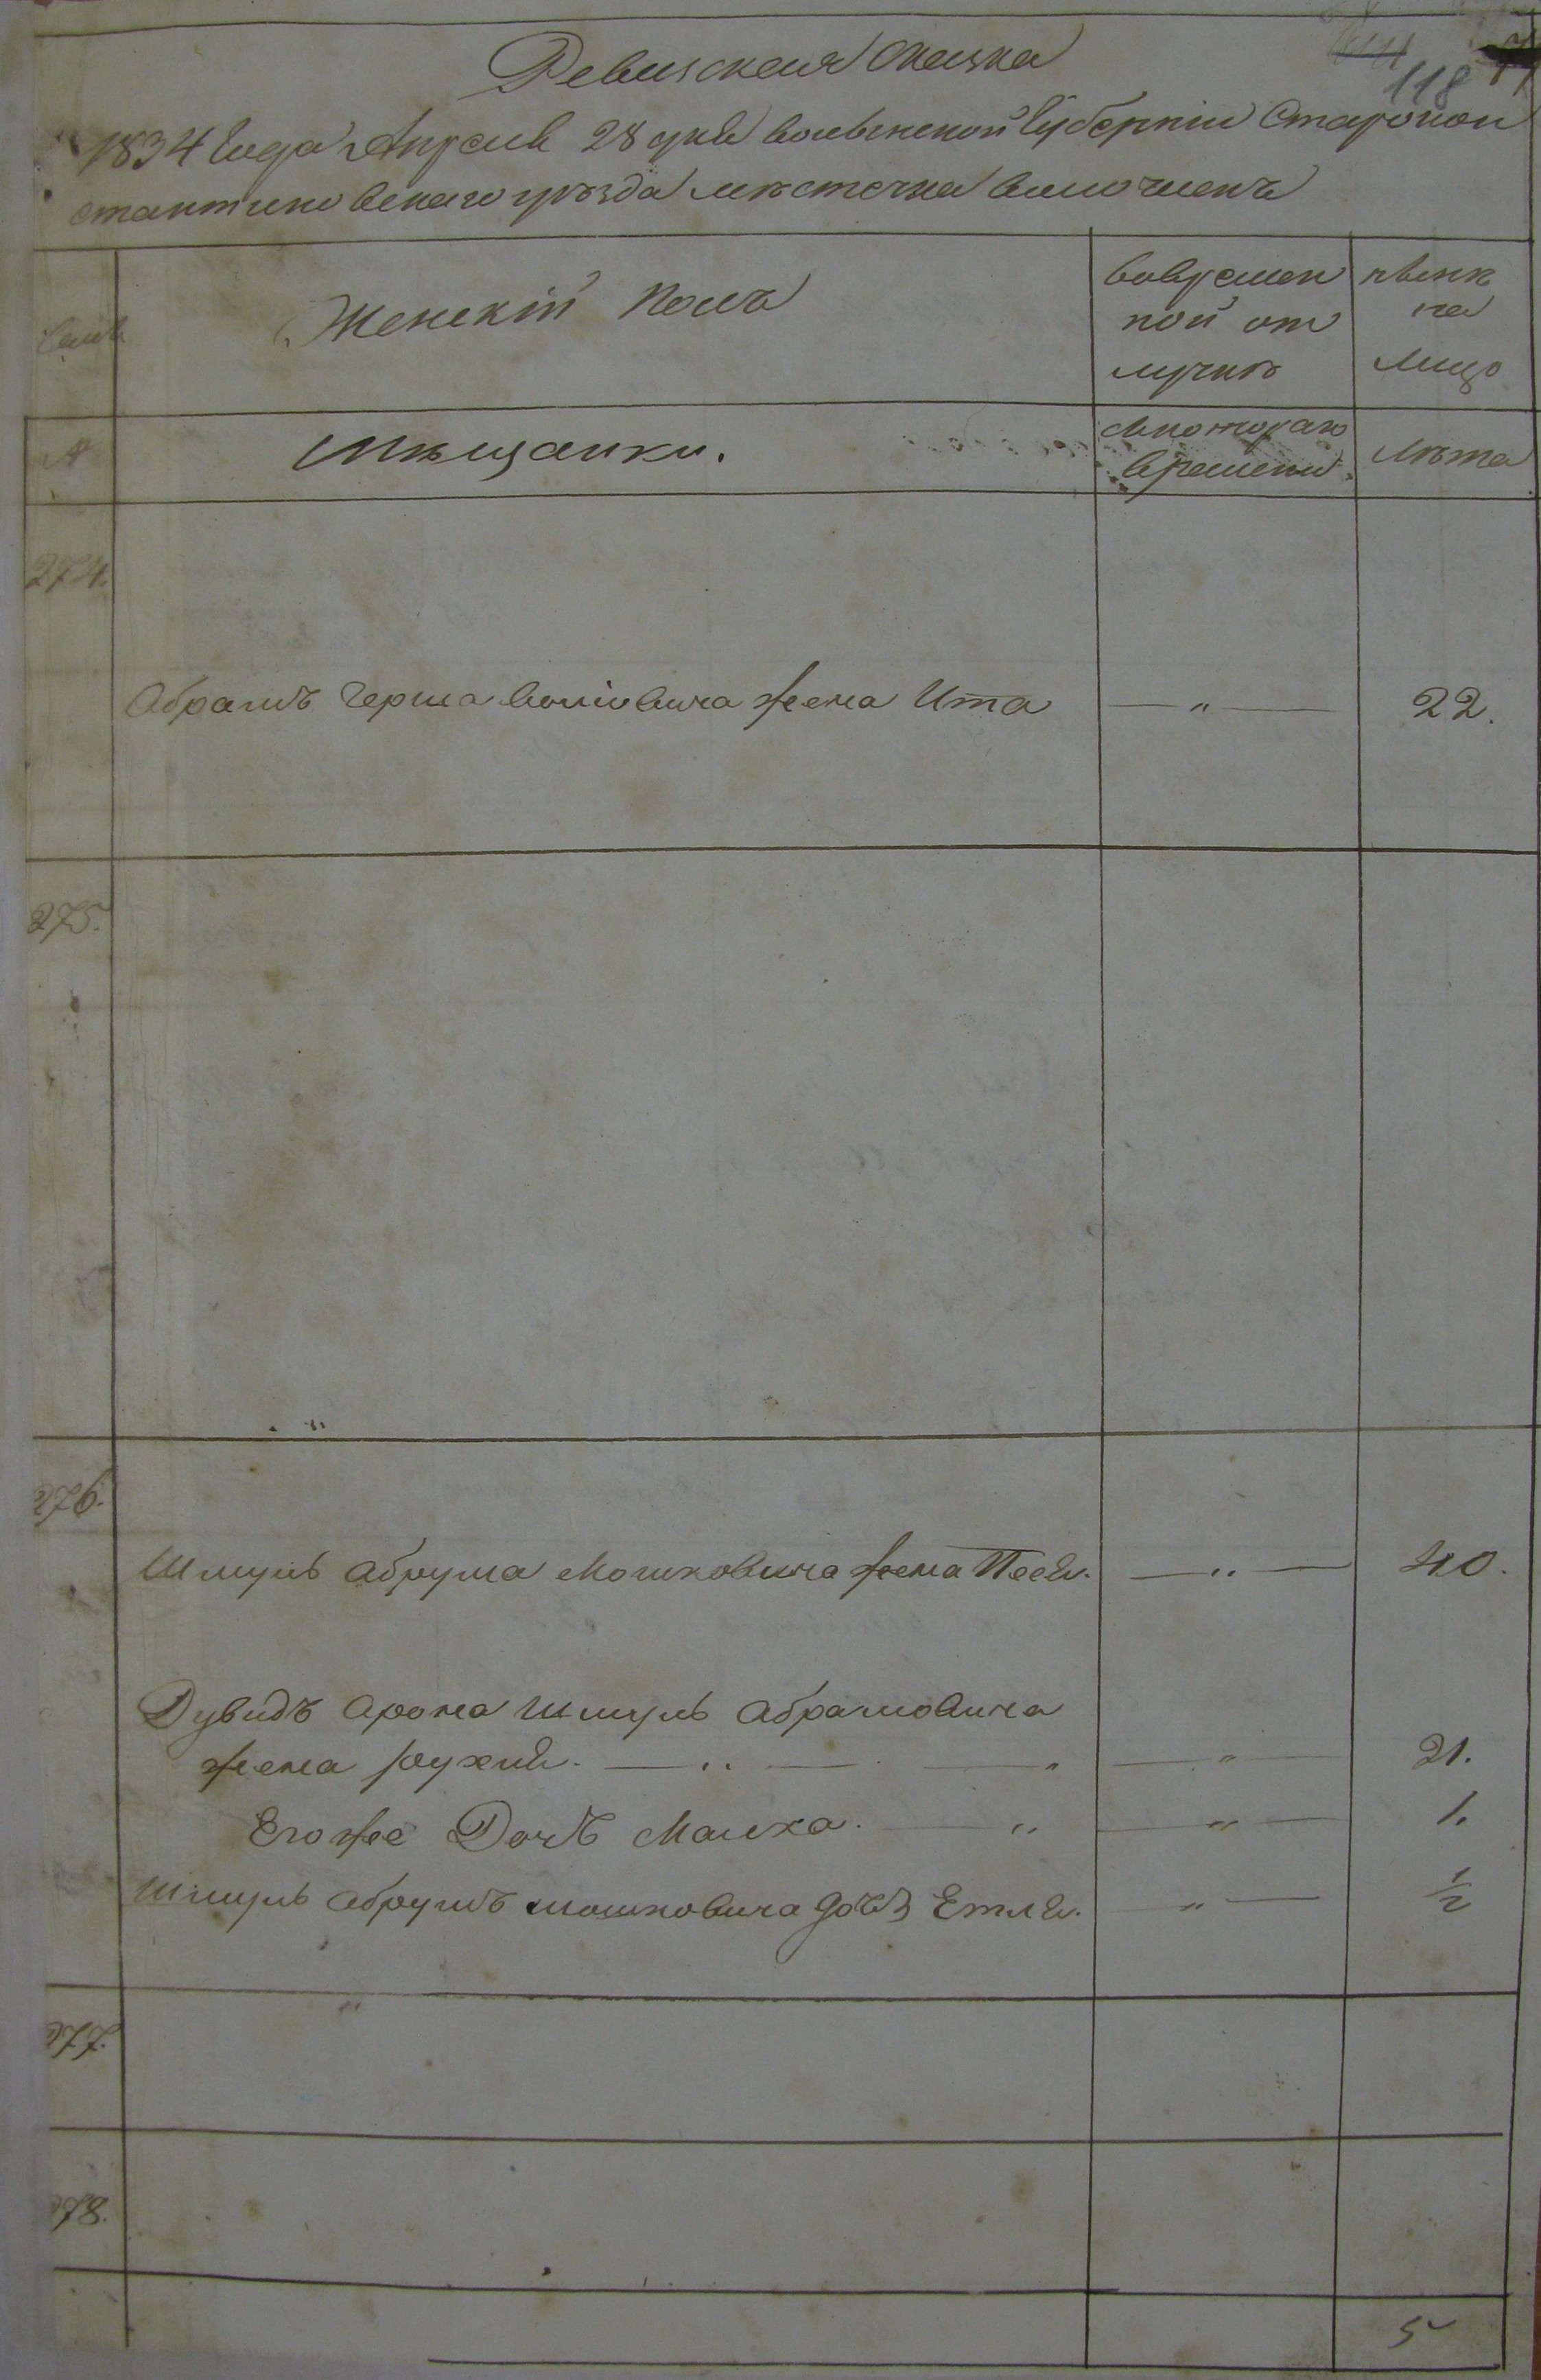 118
Ревизская Сказка
1834 Года Апреля 28 дня волынской Губерніи Старокон
стантиновскаго уѣзда мѣстечка волочискъ
Семьи
Женскій полъ
вовремен
ной от
лучкѣ
нынѣ
на
лицо
№
Мѣщанки.
Скотораго
времени
Лѣта
274.
Абрамъ Герша волiовича жена Ита — " — 22.
275.
"
276.
Шмуль Абрума Мошковича жена Песя. — " — 40.
Дувидъ Арона Шмуль Абрамовича
жена Рухля. — " — " — " — 21.
Егоже Дочь Малка. — " — " — 1.
Шмуль Абрумъ мошковича дочь Етля. " — 1/2
277.
"
278.
5